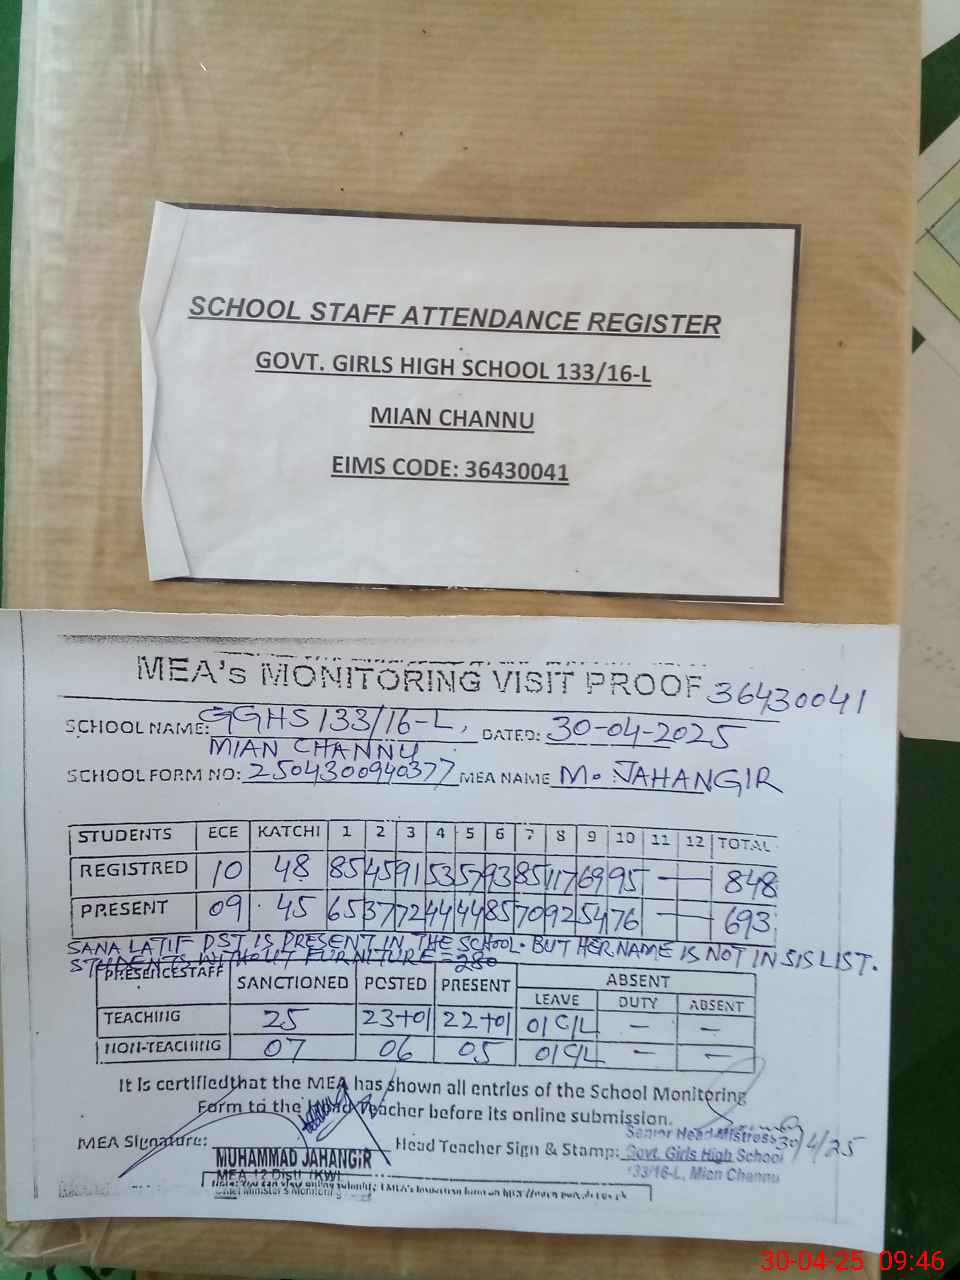 SCHOOL STAFF ATTENDANCE REGISTER
GOVT. GIRLS HIGH SCHOOL 133/16-L
MIAN CHANNU
EIMS CODE: 36430041
MEA's MONITORING VISIT PROOF 36430041
SCHOOL NAME: GGHS 133/16-L, DATED: 30-04-2025
MIAN CHANNU
SCHOOL FORM NO: 2504300940377 MEA NAME M. JAHANGIR
STUDENTS ECE KATCHI 1 2 3 4 5 6 7 8 9 10 11 12 TOTAL
REGISTRED 10 48 85 45 91 53 57 93 85 117 69 95 — 848
PRESENT 09 45 65 37 72 44 44 85 70 92 54 76 — 693
SANA LATIF DST IS PRESENT IN THE SCHOOL. BUT HER NAME IS NOT IN SIS LIST.
STUDENTS WITHOUT FURNITURE = 280
PRESENCE STAFF SANCTIONED POSTED PRESENT ABSENT
LEAVE DUTY ABSENT
TEACHING 25 23+01 22+01 01 C/L — —
NON-TEACHING 07 06 05 01 C/L — —
It is certified that the MEA has shown all entries of the School Monitoring
Form to the Head Teacher before its online submission.
MEA Signature: Head Teacher Sign & Stamp:
Senior Head Mistress 30/4/25
Govt. Girls High School
133/16-L, Mian Channu
MUHAMMAD JAHANGIR
MEA 12 Distt (KWL)
Chief Minister's Monitoring
30-04-25 09:46